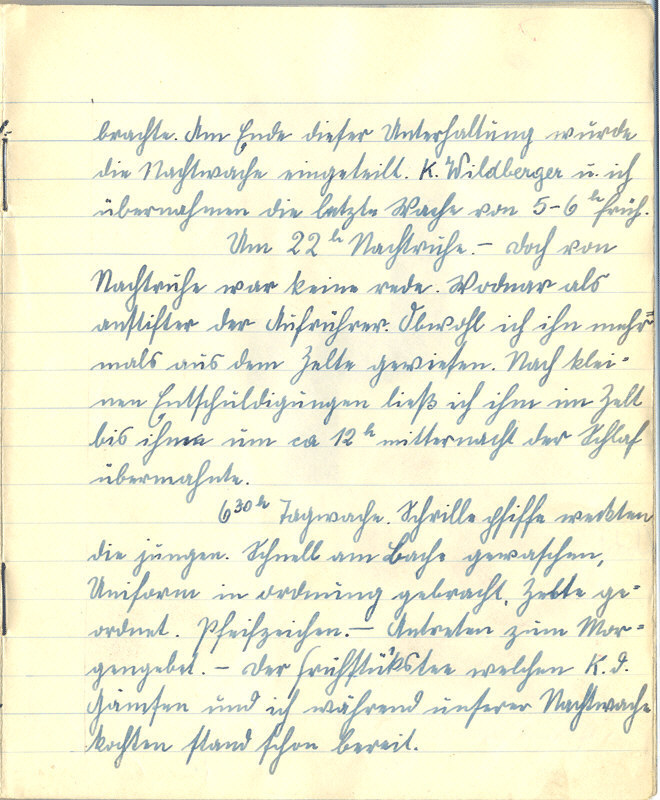 brachte. Am Ende dieser Unterhaltung wurde
die Nachtwache eingeteilt. K. Wildberger u. ich
übernahmen die letzte Wache von 5-6 h früh.
Um 22 h Nachtruhe. – Doch von
Nachtruhe war keine rede. Wodnar als
anstifter der Aufrührer. Obwohl ich ihn mehr=
mals aus dem Zelte gewiesen. Nach klei-
nen Entschuldigungen ließ ich ihm im Zelt
bis ihm um ca 12 h mitternacht der Schlaf
übermahnte.
6 30 h Tagwache. Schrille pfiffe weckten
die jungen. Schnell am Bache gewaschen,
Uniform in ordnung gebracht, Zelte ge-
ordnet. Pfeifzeichen. – Antreten zum Mor-
gengebet. – Der Frühstükstee welchen K. d.
Gämsen und ich während unserer Nachtwache
kochten stand schon bereit.